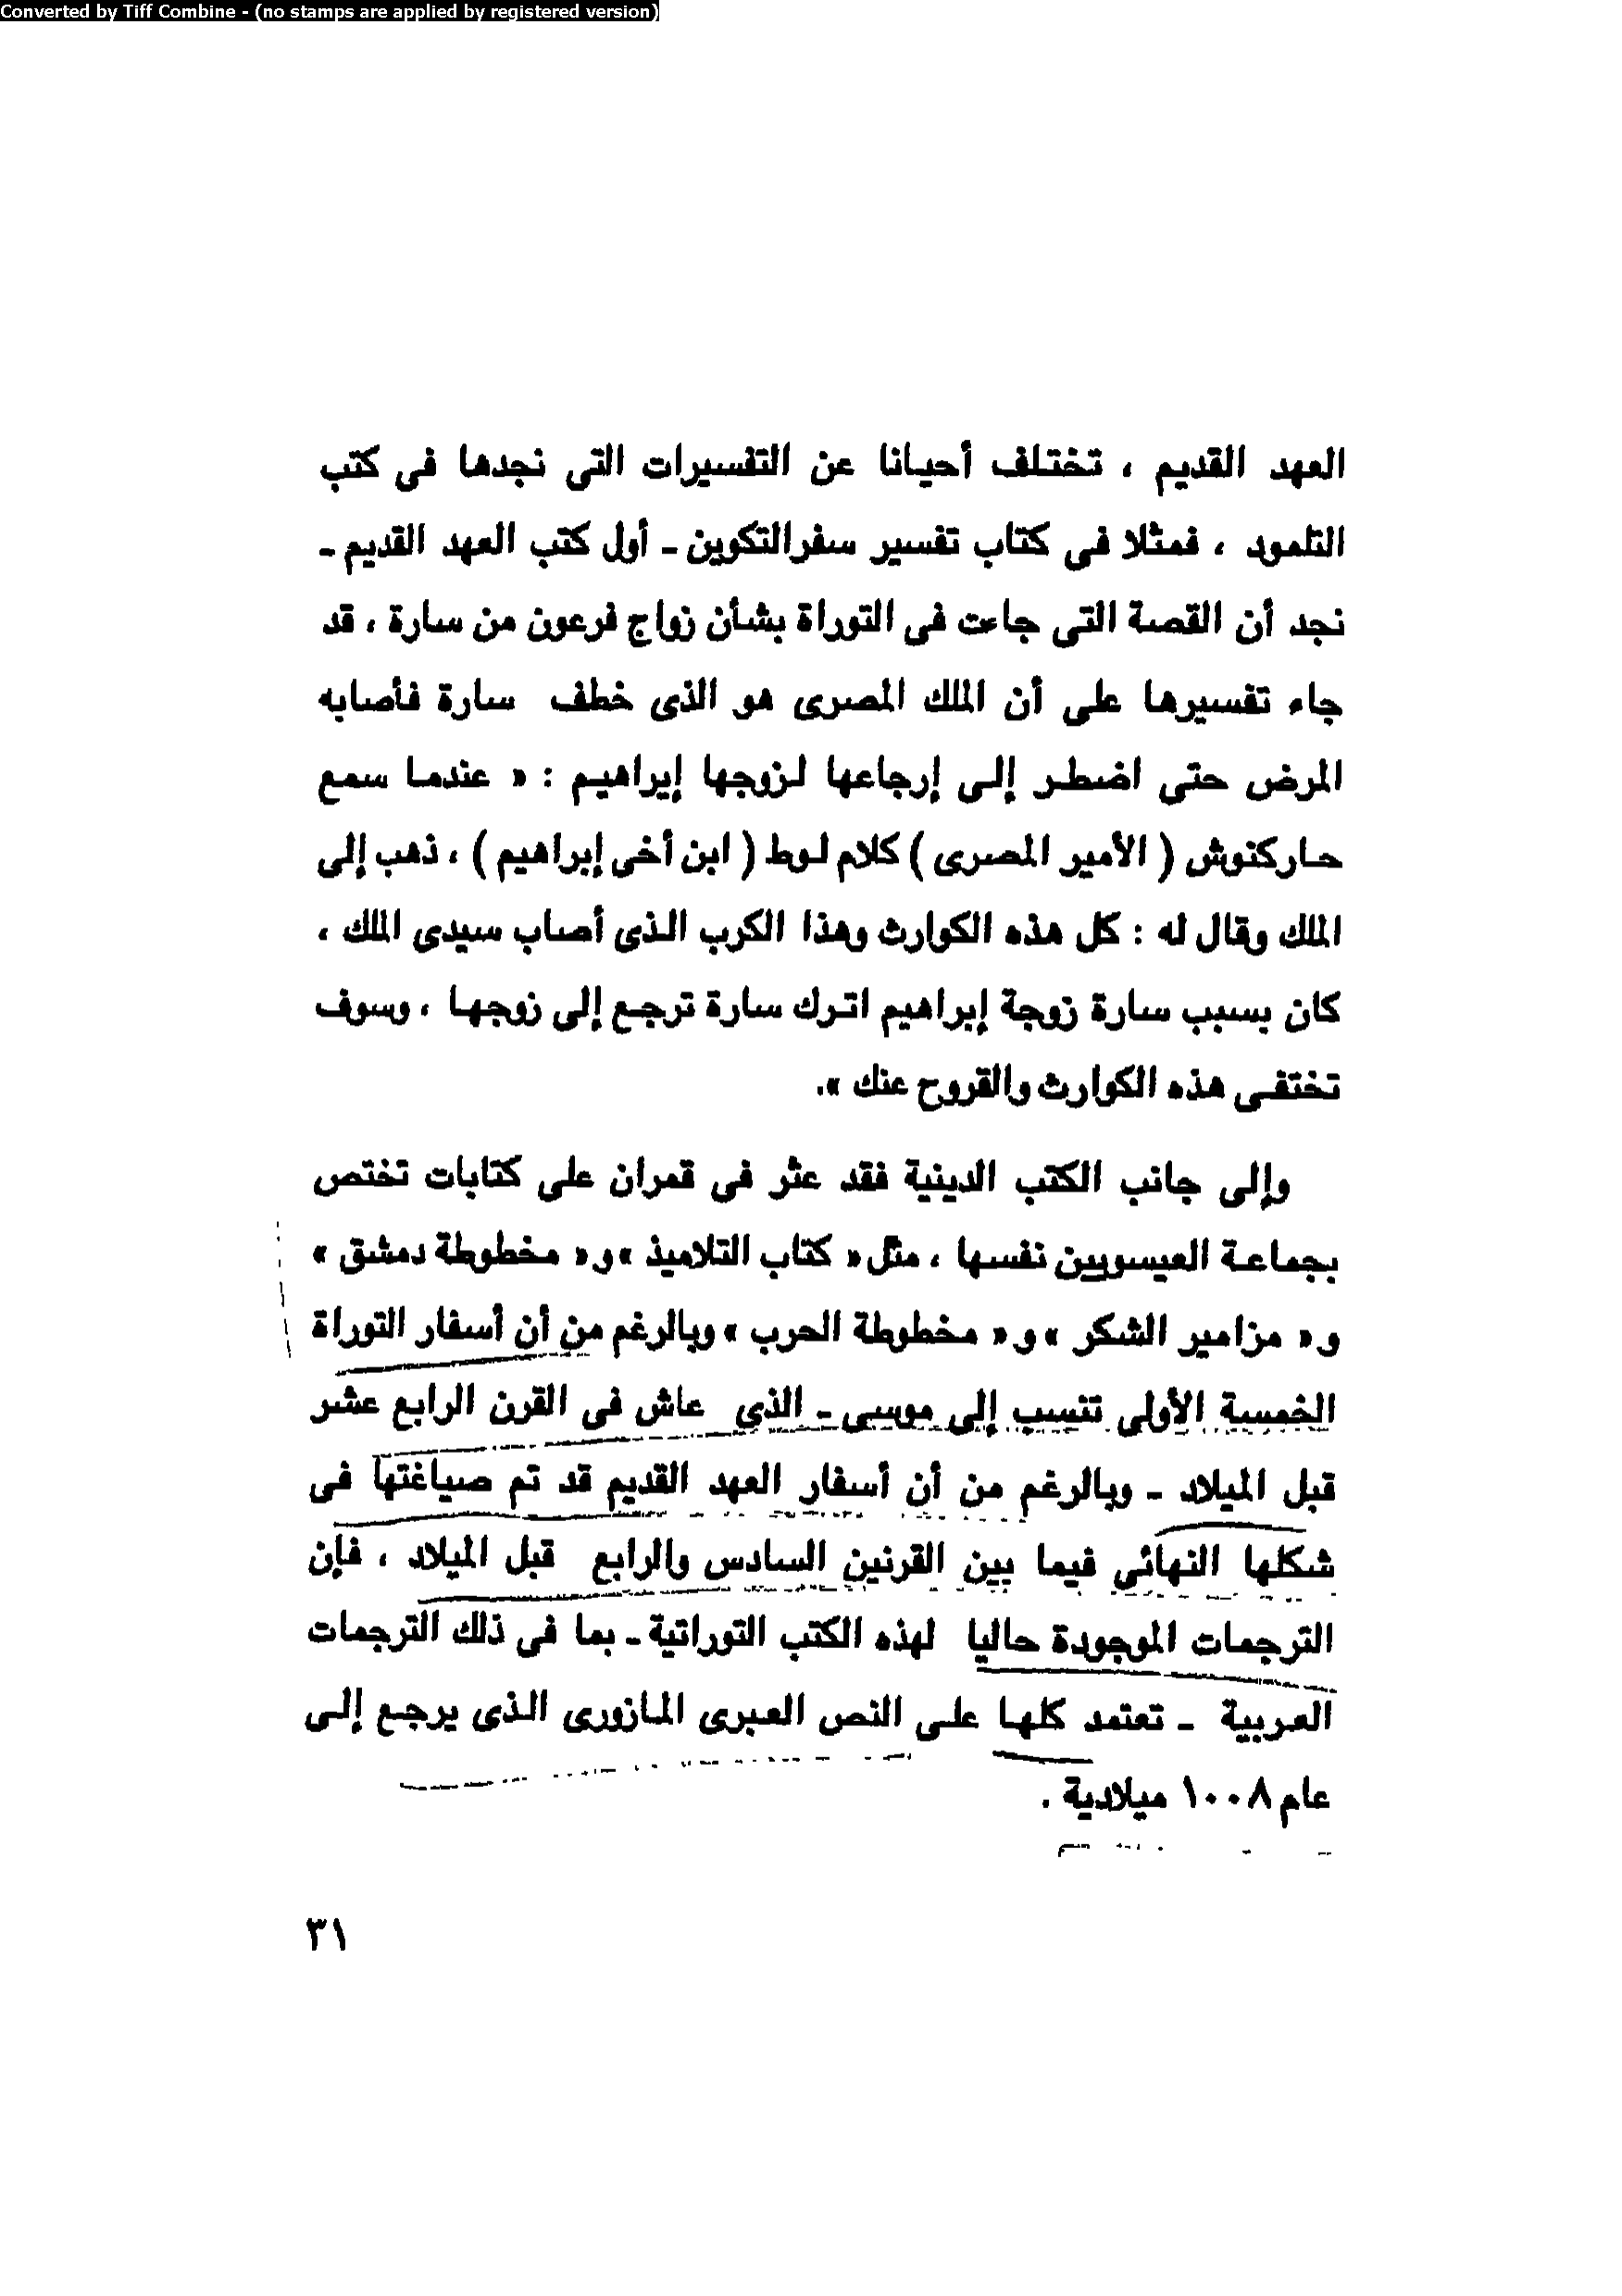 Converted by Tiff Combine - (no stamps are applied by registered version)
العهد القديم ، تختلف أحيانا عن التفسيرات التى نجدها فى كتب
التلمود ، فمثلا فى كتاب تفسير سفرالتكوين ـ أول كتب العهد القديم ـ
نجد أن القصة التى جاءت فى التوراة بشأن زواج فرعون من سارة ، قد
جاء تفسيرها على أن الملك المصرى هو الذى خطف سارة فأصابه
المرض حتى اضطر إلى إرجاعها لزوجها إبراهيم : « عندما سمع
حاركنوش ( الأمير المصرى ) كلام لوط ( ابن أخى إبراهيم ) ، ذهب إلى
الملك وقال له : كل هذه الكوارث وهذا الكرب الذى أصاب سيدى الملك ،
كان بسبب سارة زوجة إبراهيم اترك سارة ترجع إلى زوجها ، وسوف
تختفى هذه الكوارث والقروح عنك ».
وإلى جانب الكتب الدينية فقد عثر فى قمران على كتابات تختص
بجماعة العيسويين نفسها ، مثل « كتاب التلاميذ » و « مخطوطة دمشق »
و « مزامير الشكر » و « مخطوطة الحرب » وبالرغم من أن أسفار التوراة
الخمسة الأولى تنسب إلى موسى ـ الذى عاش فى القرن الرابع عشر
قبل الميلاد ـ وبالرغم من أن أسفار العهد القديم قد تم صياغتها فى
شكلها النهائى فيما بين القرنين السادس والرابع قبل الميلاد ، فإن
الترجمات الموجودة حاليا لهذه الكتب التوراتية ـ بما فى ذلك الترجمات
العربية ـ تعتمد كلها على النص العبرى المازورى الذى يرجع إلى
عام ١٠٠٨ ميلادية .
٣١